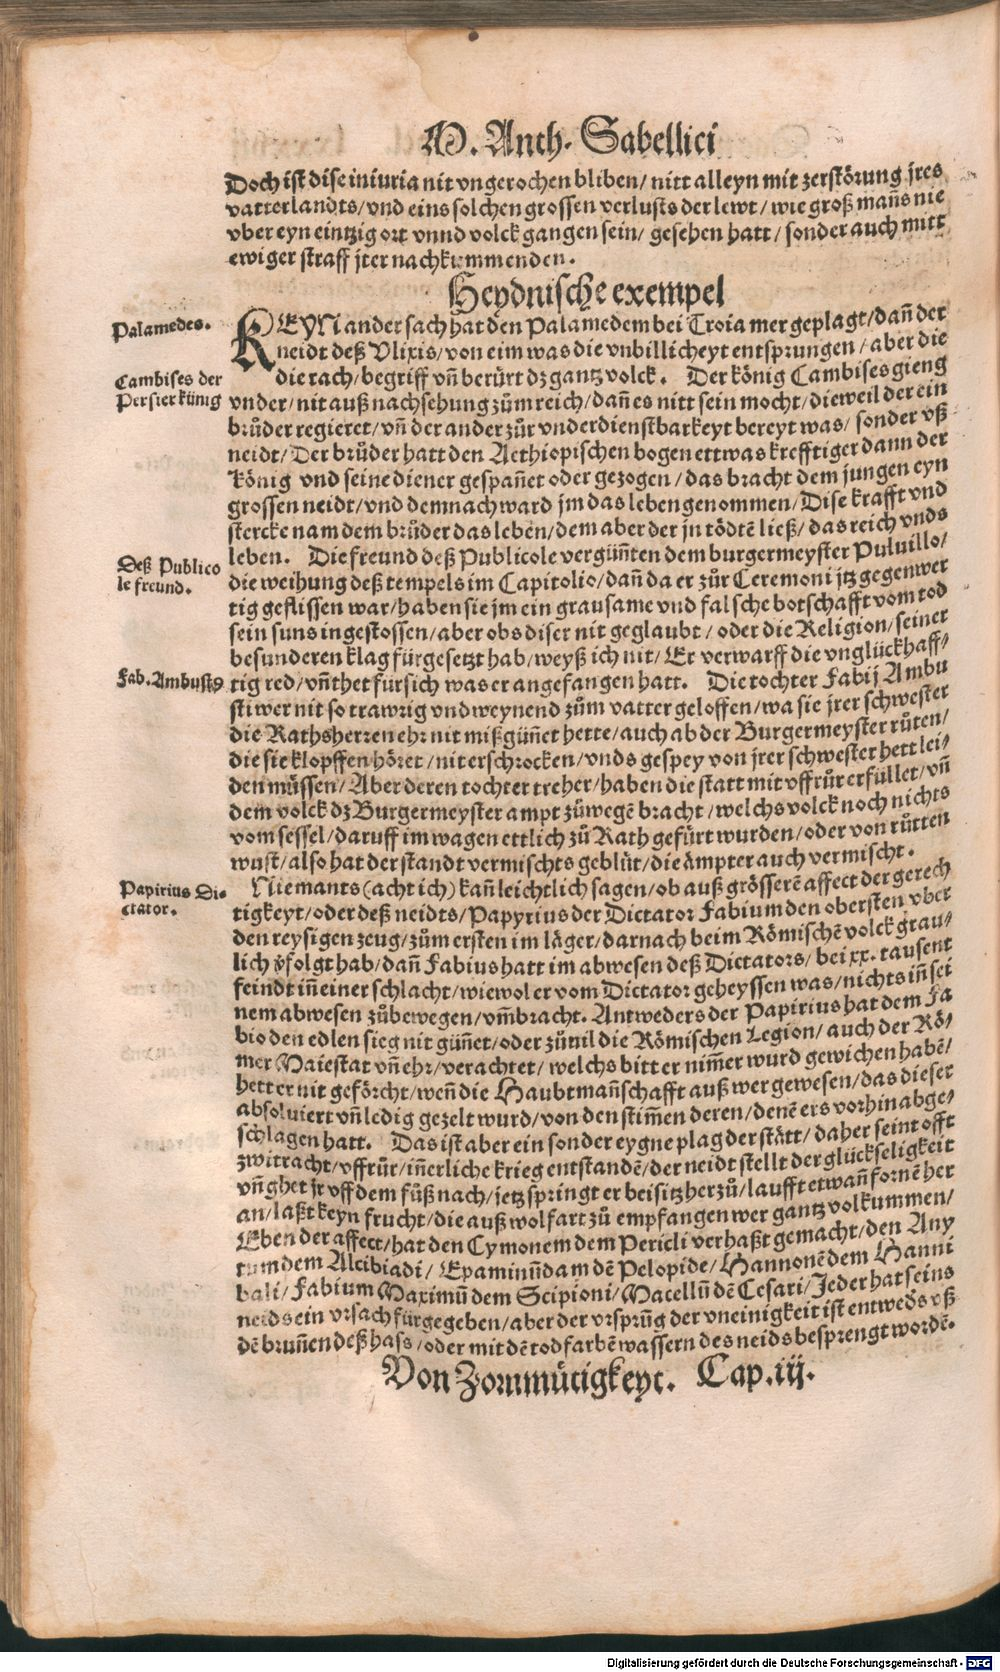 M. Anth. Sabellici
Doch ist dise iniuria nit vngerochen bliben/ nitt alleyn mit zerstörung jres
vatterlandts/vnd eins solchen grossen verlusts der lewt/ wie groß mañs nie
vber eyn eintzig ort vnnd volck gangen sein/ gesehen hatt/ sonder auch mitt
ewiger straff jrer nachkummenden.
Heydnische exempel
Palamedes.
KEYN ander sach hat den Palamedem bei Troia mer geplagt/dañ der
neidt deß Vlixis/von eim was die vnbillicheyt entsprungen/aber die
Cambises der
Persier künig
die rach/begriff vñ berürt dz gantz volck. Der könig Cambises gieng
vnder/nit auß nachsehung zům reich/dañ es nitt sein mocht/dieweil der ein
brůder regieret/vñ der ander zůr vnderdienstbarkeyt bereyt was/ sonder vß
neidt/ Der brůder hatt den Aethiopischen bogen ettwas krefftiger dann der
könig vnd seine diener gespañet oder gezogen/das bracht dem jungen eyn
grossen neidt/vnd demnach ward jm das leben genommen/Dise krafft vnd
stercke nam dem brůder das lebẽn/dem aber der jn tödtẽ ließ/das reich vnds
leben. Die freund deß Publicole vergünten dem burgermeyster Puluillo/
Deß Publico
le freund.
die weihung deß tempels im Capitolio/dañ da er zůr Ceremoni jtz gegenwer
tig geflissen war/haben sie jm ein grausame vnd falsche botschafft vom tod
sein suns ingestossen/aber obs diser nit geglaubt/ oder die Religion/seiner
besunderen klag fürgesetzt hab/weyß ich nit/ Er verwarff die vnglückhaff⸗
Fab. Ambustꝰ
tig red/vñ thet für sich was er angefangen hatt. Die tochter Fabij Ambu
sti wer nit so trawrig vnd weynend zům vatter geloffen/wa sie jrer schwester
die Rathsherren ehr nit mißgünet hette/auch ab der Burgermeyster růten/
die sie klopffen höret/nit erschrocken/vnds gespey von jrer schwester hett lei⸗
den müssen/Aber deren tochter treher/haben die statt mit vffrůr erfüllet/vñ
dem volck dz Burgermeyster ampt zůwegẽ bracht/welchs volck noch nichts
vom sessel/daruff im wagen ettlich zů Rath gefürt wurden/oder von růtten
wust/also hat der standt vermischts geblüt/die ämpter auch vermischt.
Papirius Di⸗
ctator.
Niemants (acht ich) kañ leichtlich sagen/ob auß grösserẽ affect der gerech
tigkeyt/oder deß neidts/Papyrius der Dictator Fabium den obersten vber
den reysigen zeug/zům ersten im läger/darnach beim Römischẽ volck grau⸗
lich v̈folgt hab/dañ Fabius hatt im abwesen deß Dictators/bei xx. tausent
feindt iñ einer schlacht/wiewol er vom Dictator geheyssen was/nichts iñ sei
nem abwesen zůbewegen/vm̃bracht. Antweders der Papirius hat dem Fa
bio den edlen sieg nit günet/oder zůuil die Römischen Legion/auch der Rö⸗
mer Maiestat vñ ehr/verachtet/welchs bitt er nim̃er wurd gewichen habẽ/
hett er nit geförcht/weñ die Haubtmañschafft auß wer gewesen/das dieser
absoluiert vñ ledig gezelt wurd/von den stim̃en deren/denẽ ers vorhin abge⸗
schlagen hatt. Das ist aber ein sonder eygne plag der stätt/daher seint offt
zwitracht/vffrůr/iñerliche krieg entstandẽ/der neidt stellt der glückseligkeit
vñ ghet jr vff dem fůß nach/jetz springt er beisitz herzů/laufft etwañ fornẽ her
an/laßt keyn frucht/die auß wolfart zů empfangen wer gantz volkummen/
Eben der affect/hat den Cymonem dem Pericli verhaßt gemacht/den Any
tum dem Alcibiadi/ Epaminũdam dẽ Pelopide/Hannonẽ dem Hanni
bali/Fabium Maximũ dem Scipioni/Macellũ dẽ Cesari/Jeder hat seins
neids ein vrsach fürgegeben/aber der vrsprũg der vneinigkeit ist entweds vß
dẽ bruñen deß hass/oder mit dẽ todfarbẽ wassern des neids besprengt wordẽ.
Von Zornmütigkeyt. Cap. iij.
Digitalisierung gefördert durch die Deutsche Forschungsgemeinschaft - DFG